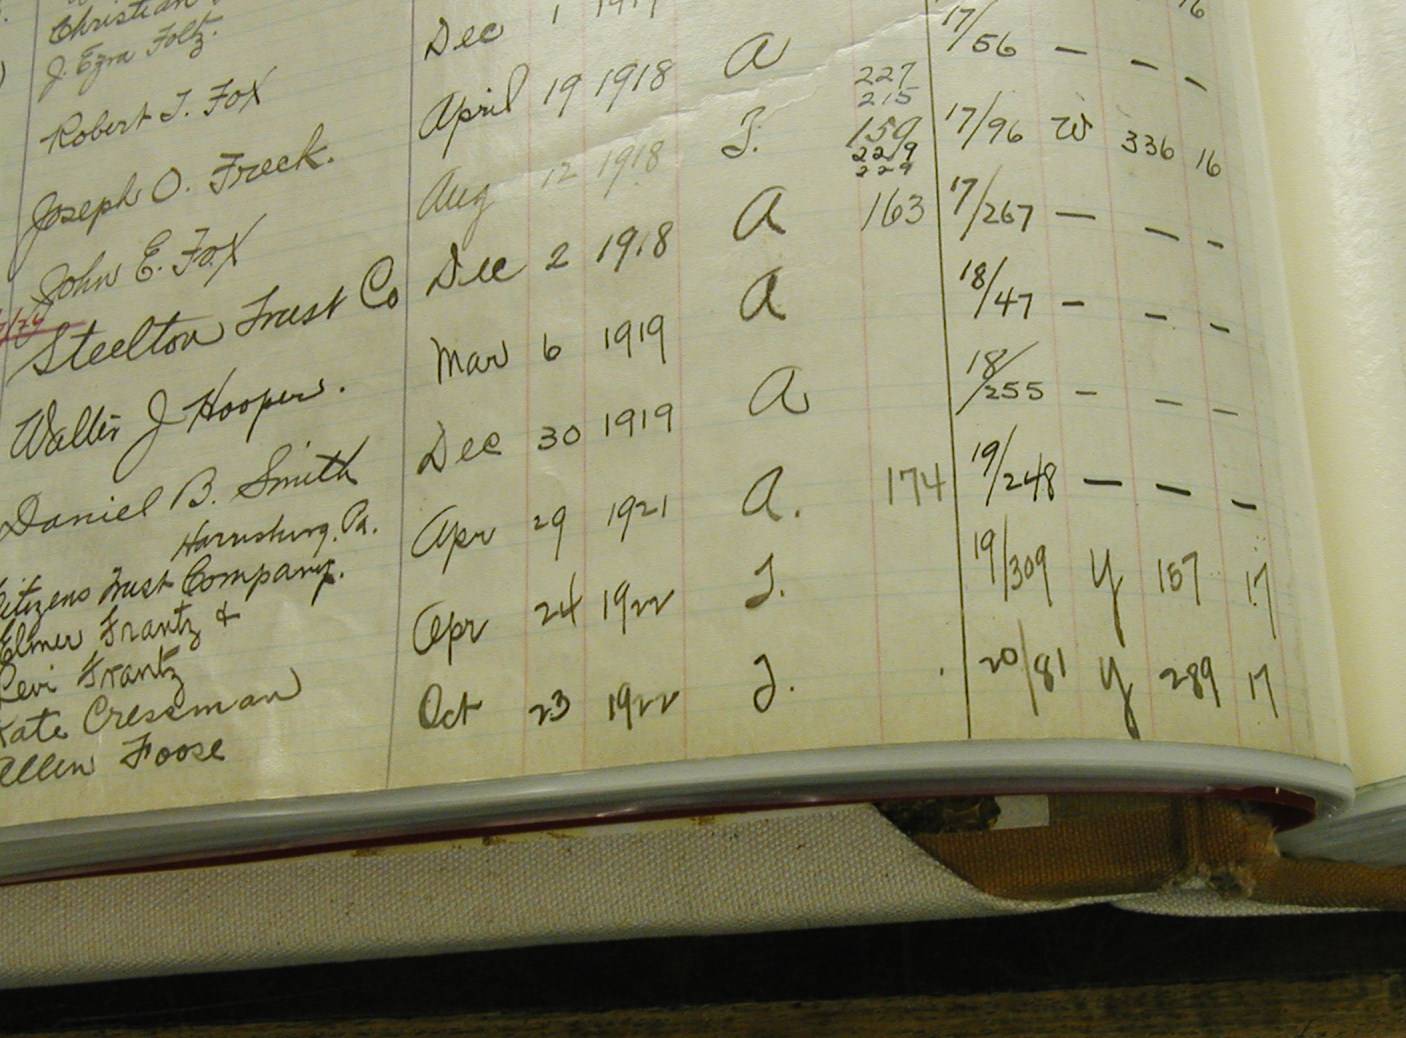 Christian
J. Ezra Foltz.
Robert T. Fox Dec 1 1917
Joseph O. Freck. April 19 1918 A 17/56 – – –
227
215
John E. Fox Aug 12 1918 T. 159 17/96 W 336 16
229
229
Steelton Trust Co Dec 2 1918 A 163 17/267 – – –
Walter J Hooper. Mar 6 1919 A 18/47 – – –
Daniel B. Smith Dec 30 1919 A 18/255 – – –
Harrisburg, Pa.
Citizens Trust Company. Apr 29 1921 A. 174 19/248 – – –
Elmer Frantz &
Levi Frantz Apr 24 1922 T. 19/309 Y 157 17
Kate Cressman
Allen Foose Oct 23 1922 T. 20/81 Y 289 17